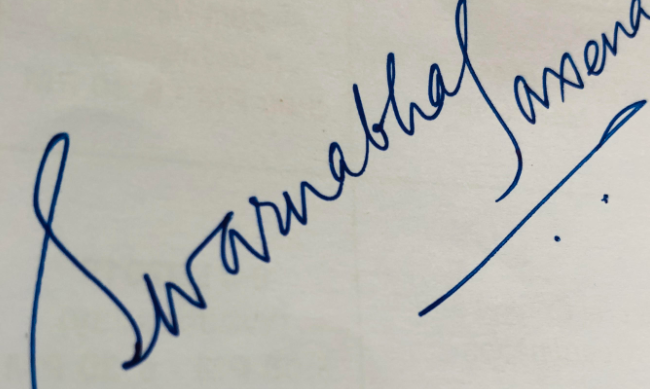 Swarnabha Saxena